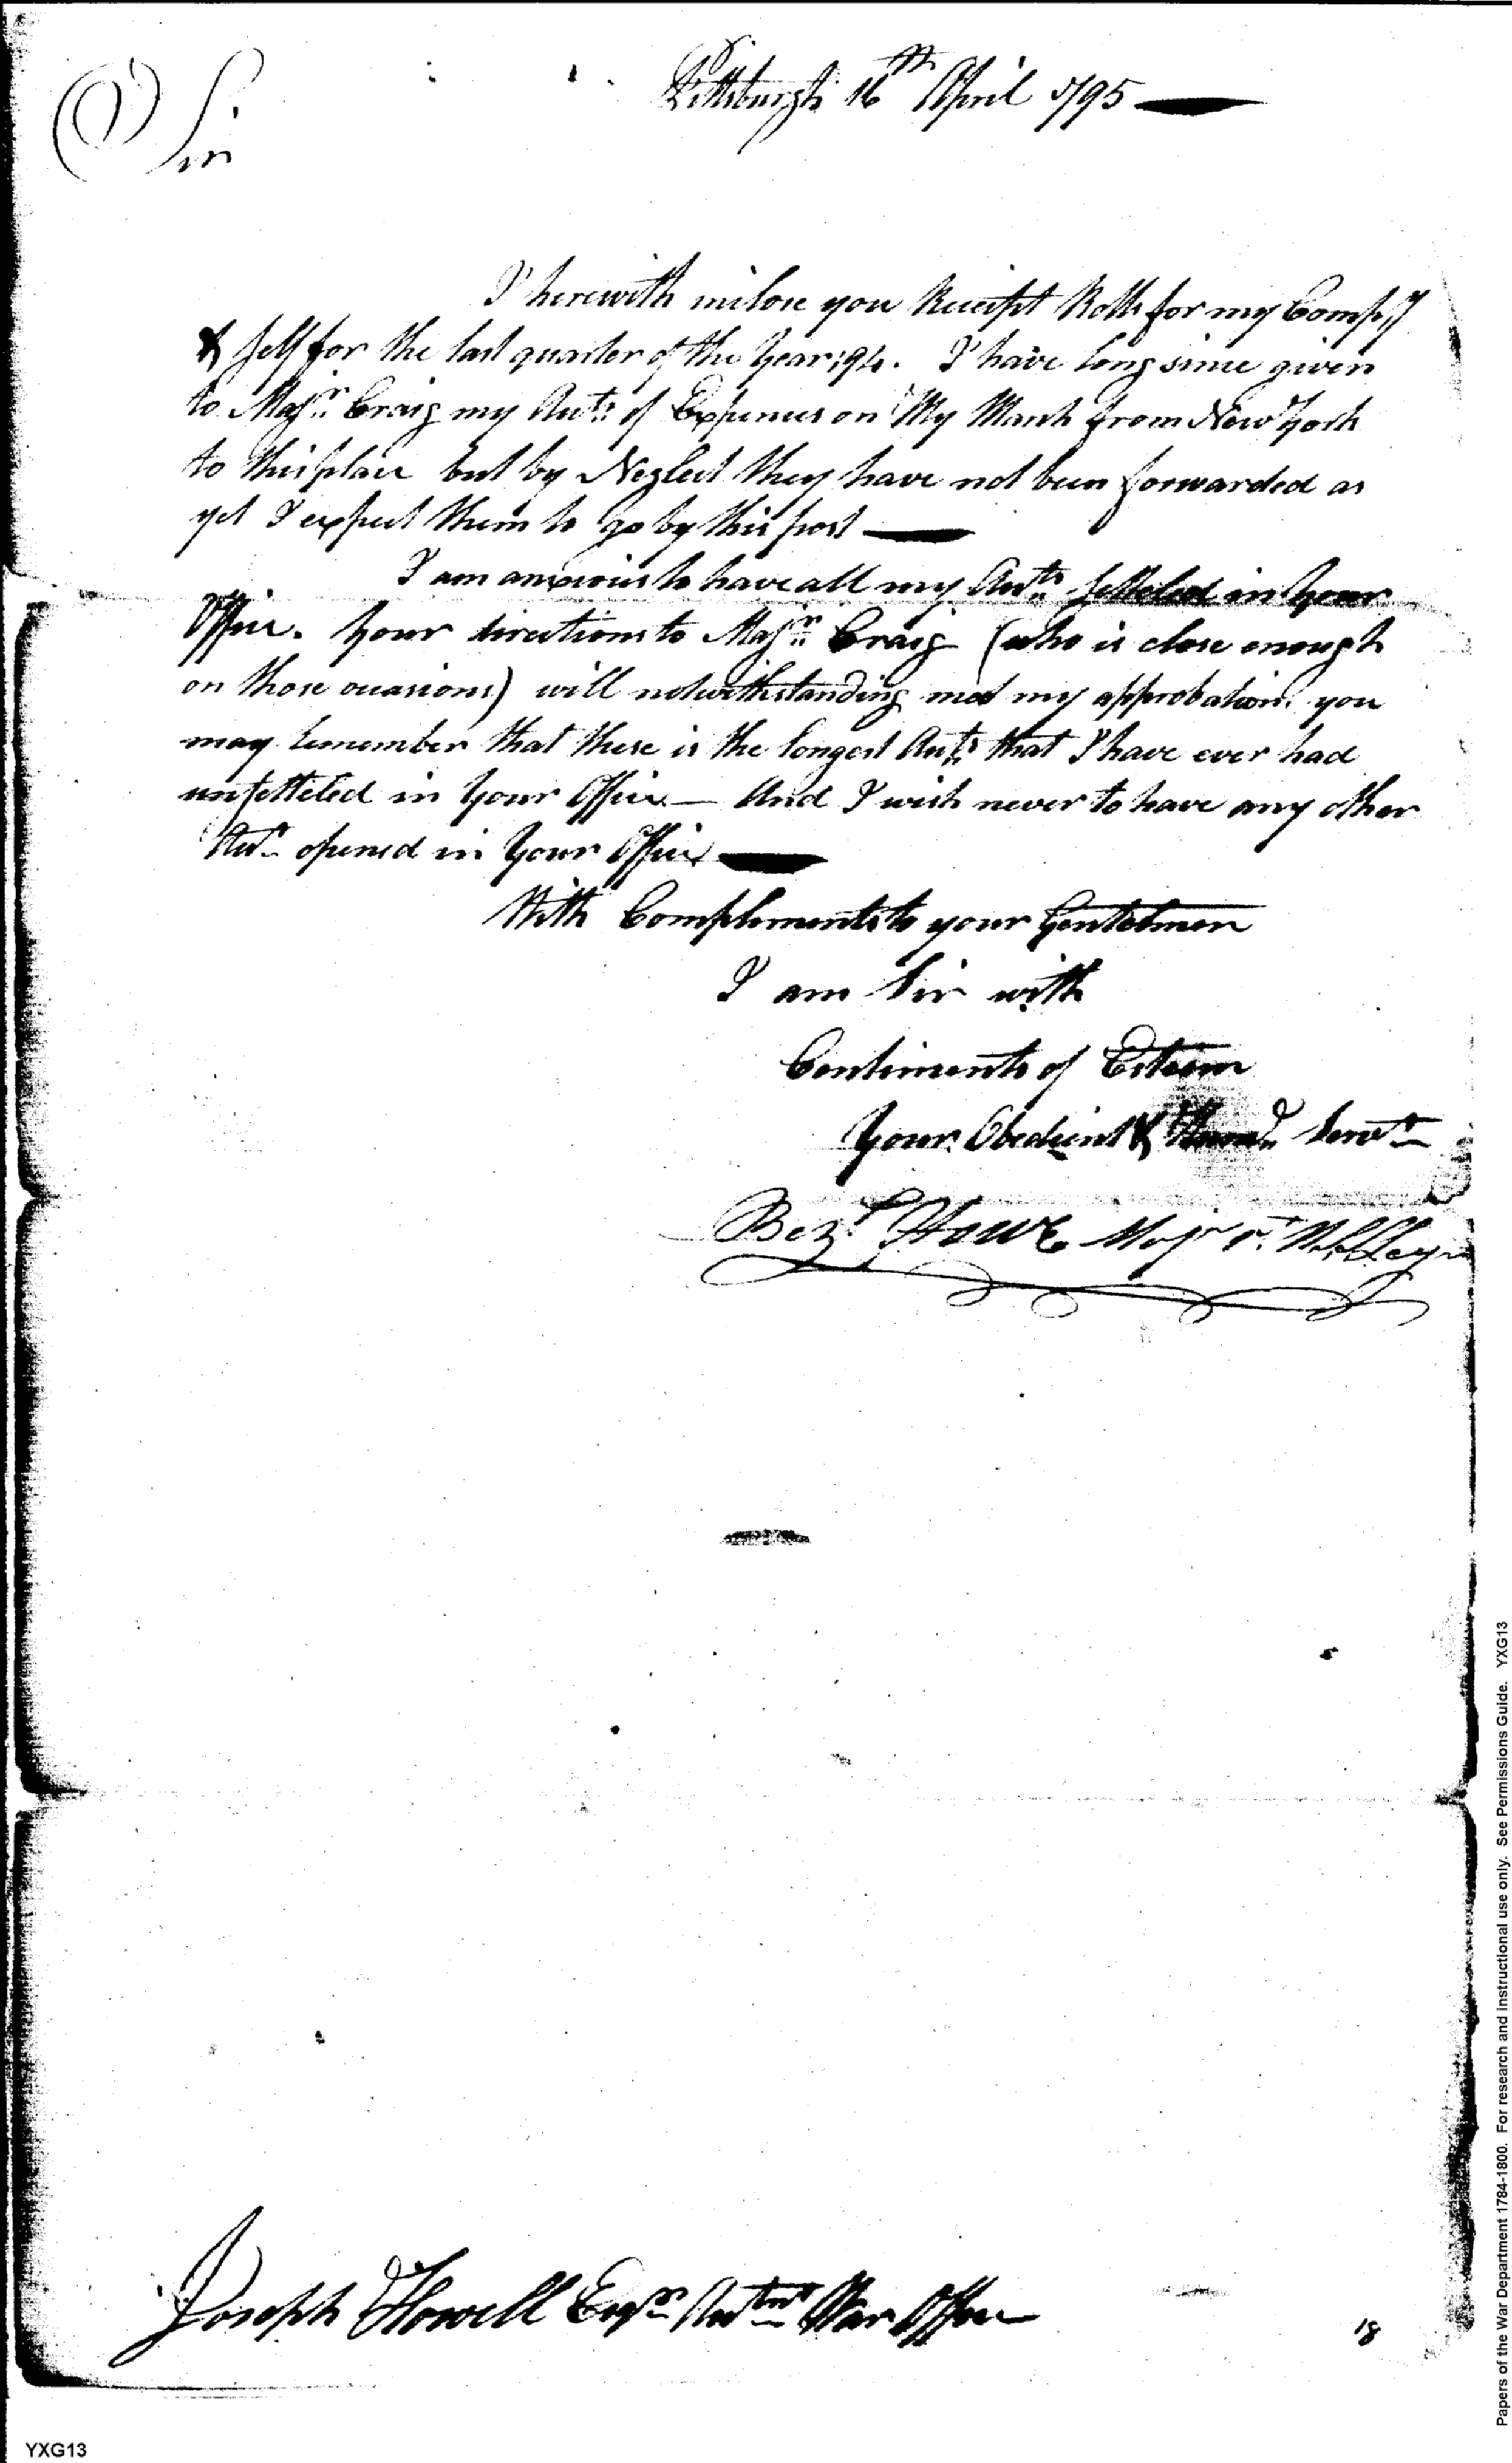 Pittsburgh 16th April 1795
Sir
I herewith inclose you Receipt Rolls for my Compy
& self for the last quarter of the Year 94. I have long since given
to Majr. Craig my Acts. of Expences on My March from New York
to this place but by Neglect they have not been forwarded as
yet I expect them to go by this post
I am anxious to have all my Acts. setteled in your
Office. Your directions to Majr. Craig (who is close enough
on those occasions) will notwithstanding met my approbation. you
may remember that these is the longest Acts. that I have ever had
unsetteled in Your Office — And I wish never to have any other
Act. opened in Your Office
With Complements to your Gentelmen
I am Sir with
Centiments of Esteem
Your Obedient & Humb. Servt.
Bezl. Howe Majr
Joseph Howell Esqr. Actnt War Office
18
Papers of the War Department 1784-1800. For research and instructional use only. See Permissions Guide. YXG13
YXG13